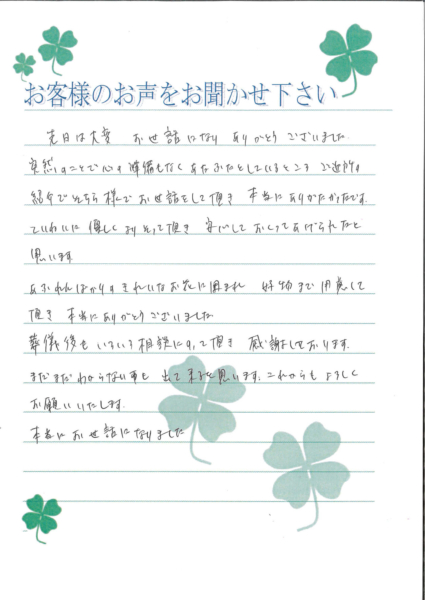 お客様のお声をお聞かせ下さい
先日は大変 お世話になり ありがとう ございました
突然のことで心の準備もなく あたふたとしているところ ご近所の
紹介でそちら様で お世話をして頂き 本当に ありがたかったです.
ていねいに 優しく より そって頂き 安心して おくってあげられたと
思います
あふれんばかりの きれいな お花に囲まれ 好物まで 用意して
頂き 本当に ありがとう ございました
葬儀後も いろいろ 相談にのって頂き 感謝をしております.
まだまだ わからない事も 出て来ると思います. これからも よろしく
お願いいたします.
本当に お世話になりました